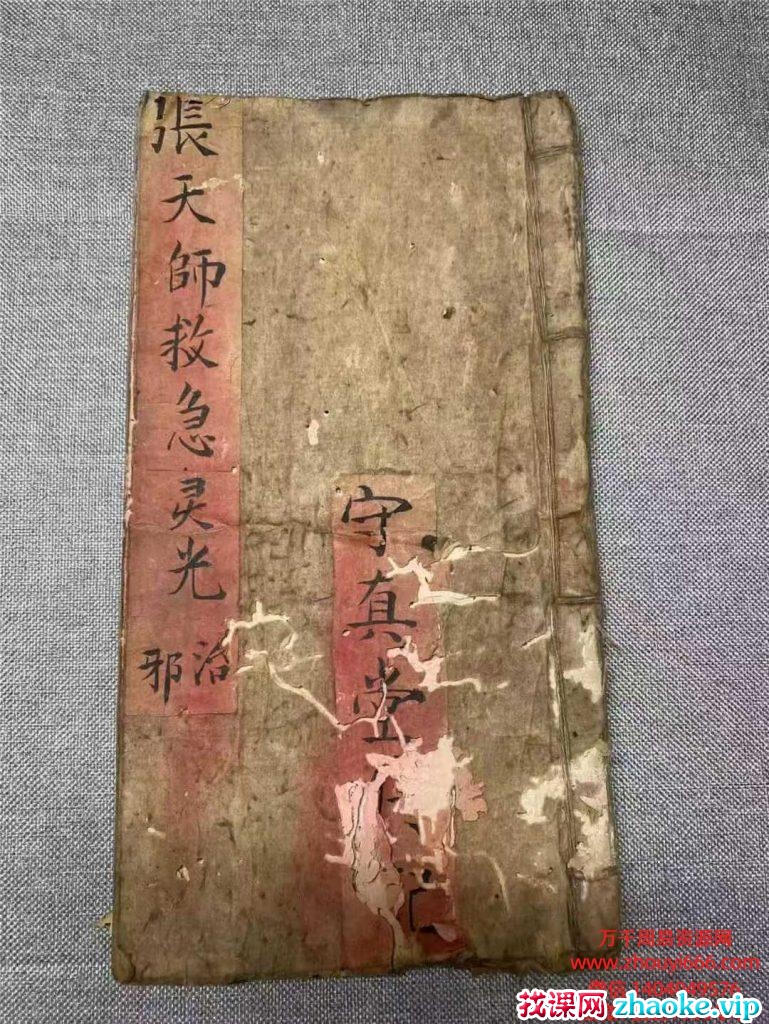 張天師救急灵光
治邪
守真堂
万千周易资源网
www.zhouyi666.com
找课网zhaoke.vip